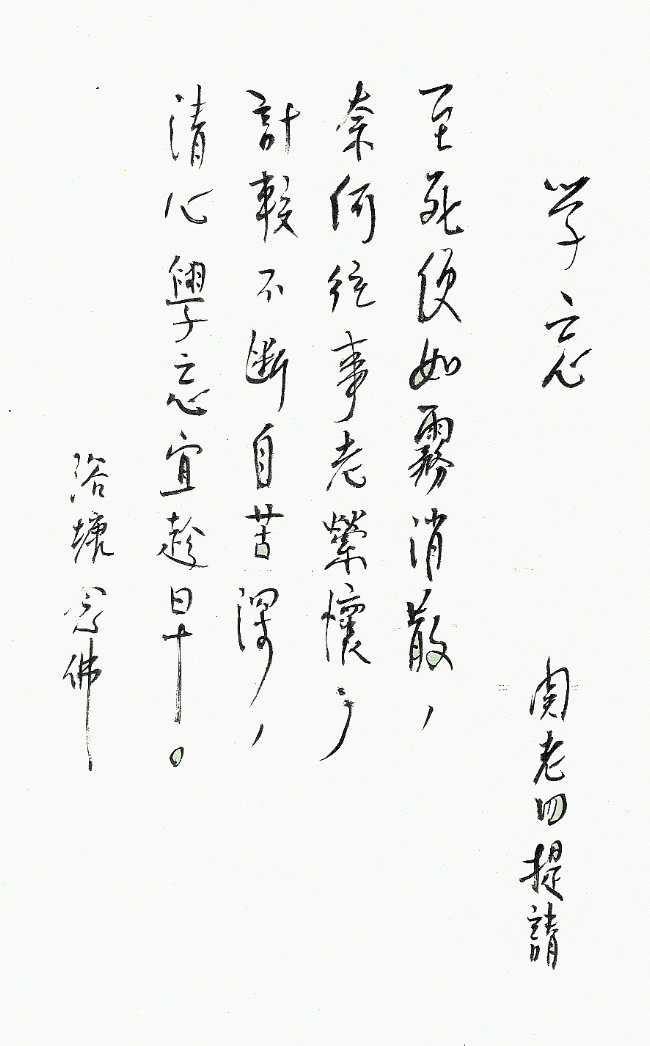 学忘
阅老四提請
至死便如霧消散，
奈何往事老縈懷；
計較不断自苦深，
清心學忘宜趁早。
浴塘念佛